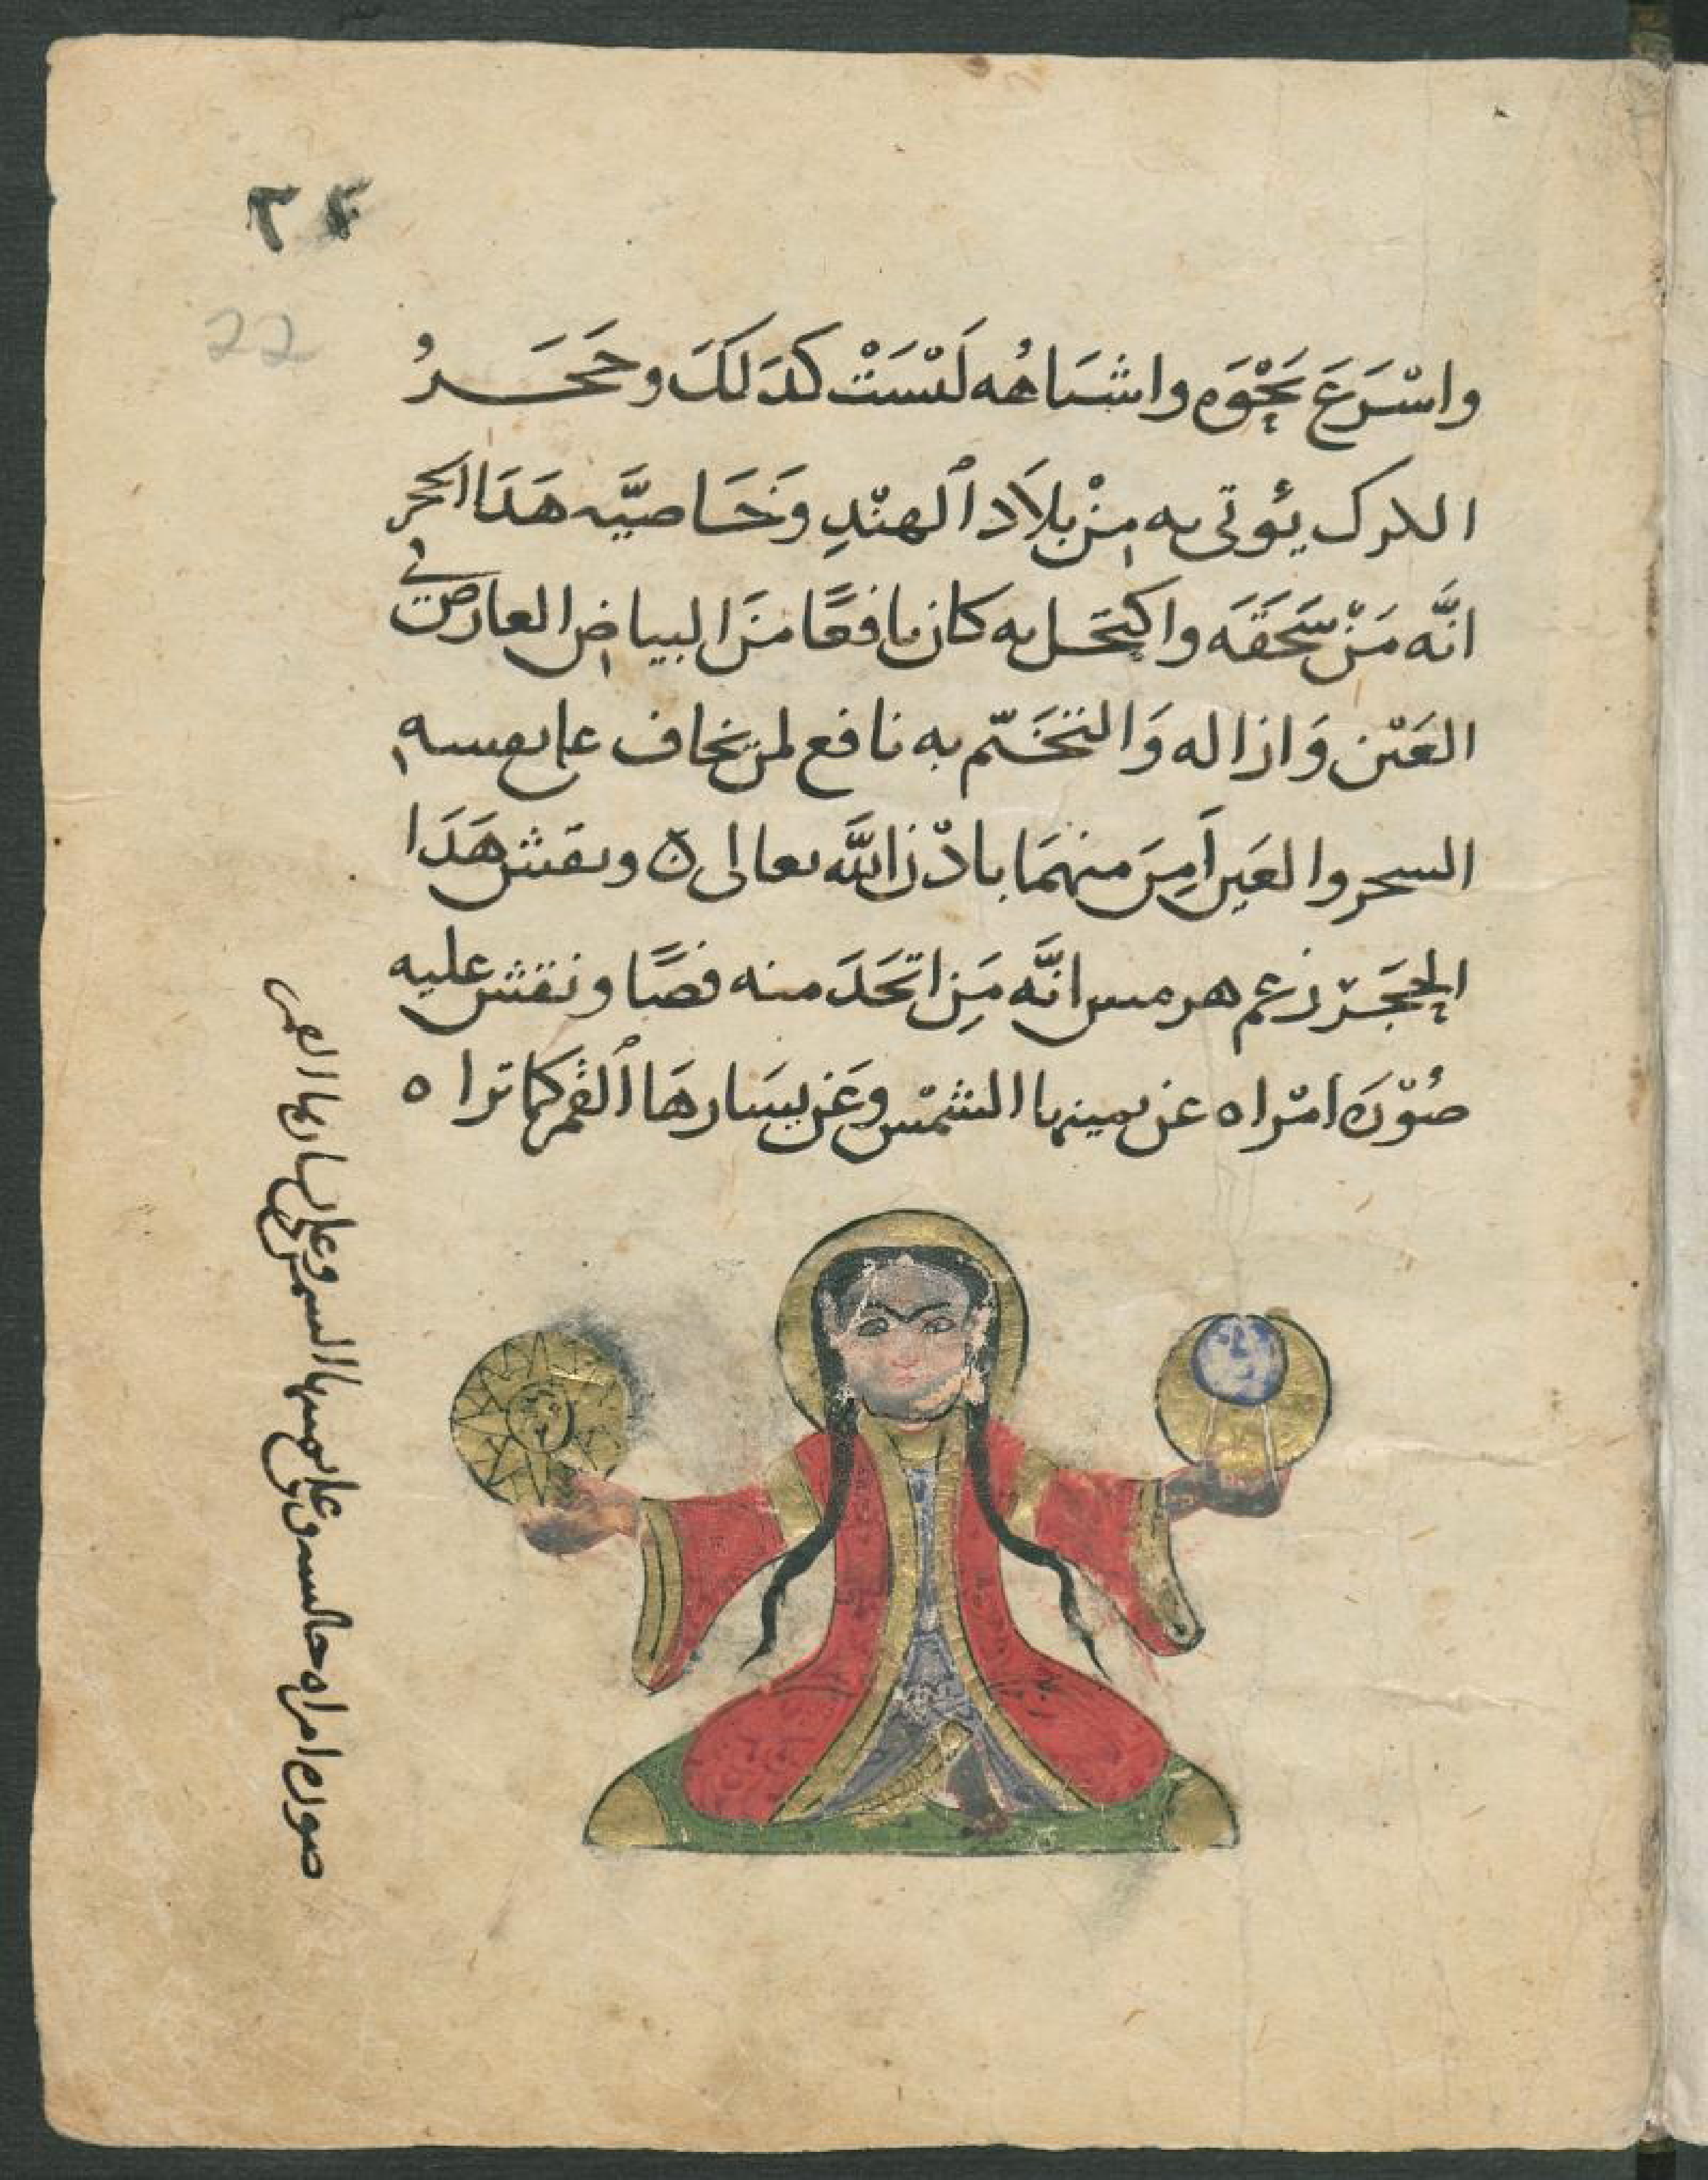 ٢٤
22
واسْرَعَ نَحْوَه واشباهُه لَيْسَتْ كدَلكَ وحَجَــرُ
الكرك يؤتى به مِنْ بِلاَد ٱلهنْدِ وَخَاصيَّه هَدَا الححر
انَّه مَنْ سَحَقَه واكتحَل به كان نافعًا منَ البياض العارض في
العَيْن وَازاله وَالتخَتّم به نافع لمن يخاف على نفسه
السحر والعَين اَمِنَ منهمَا بادْن اللَّه تعالى ۞ ونقش هَدَا
الحِجَر زعم هرمس انَّه مَنِ اتخَدَ منه فصًا ونقش عليه
صُوْرَه امْراه عن يمينها الشمْس وعَن يسَارهَا ٱلقمَر كما ترا ه
صوره امراه جالسه وعلى يمينها الشمس وعلى يسارها القمر